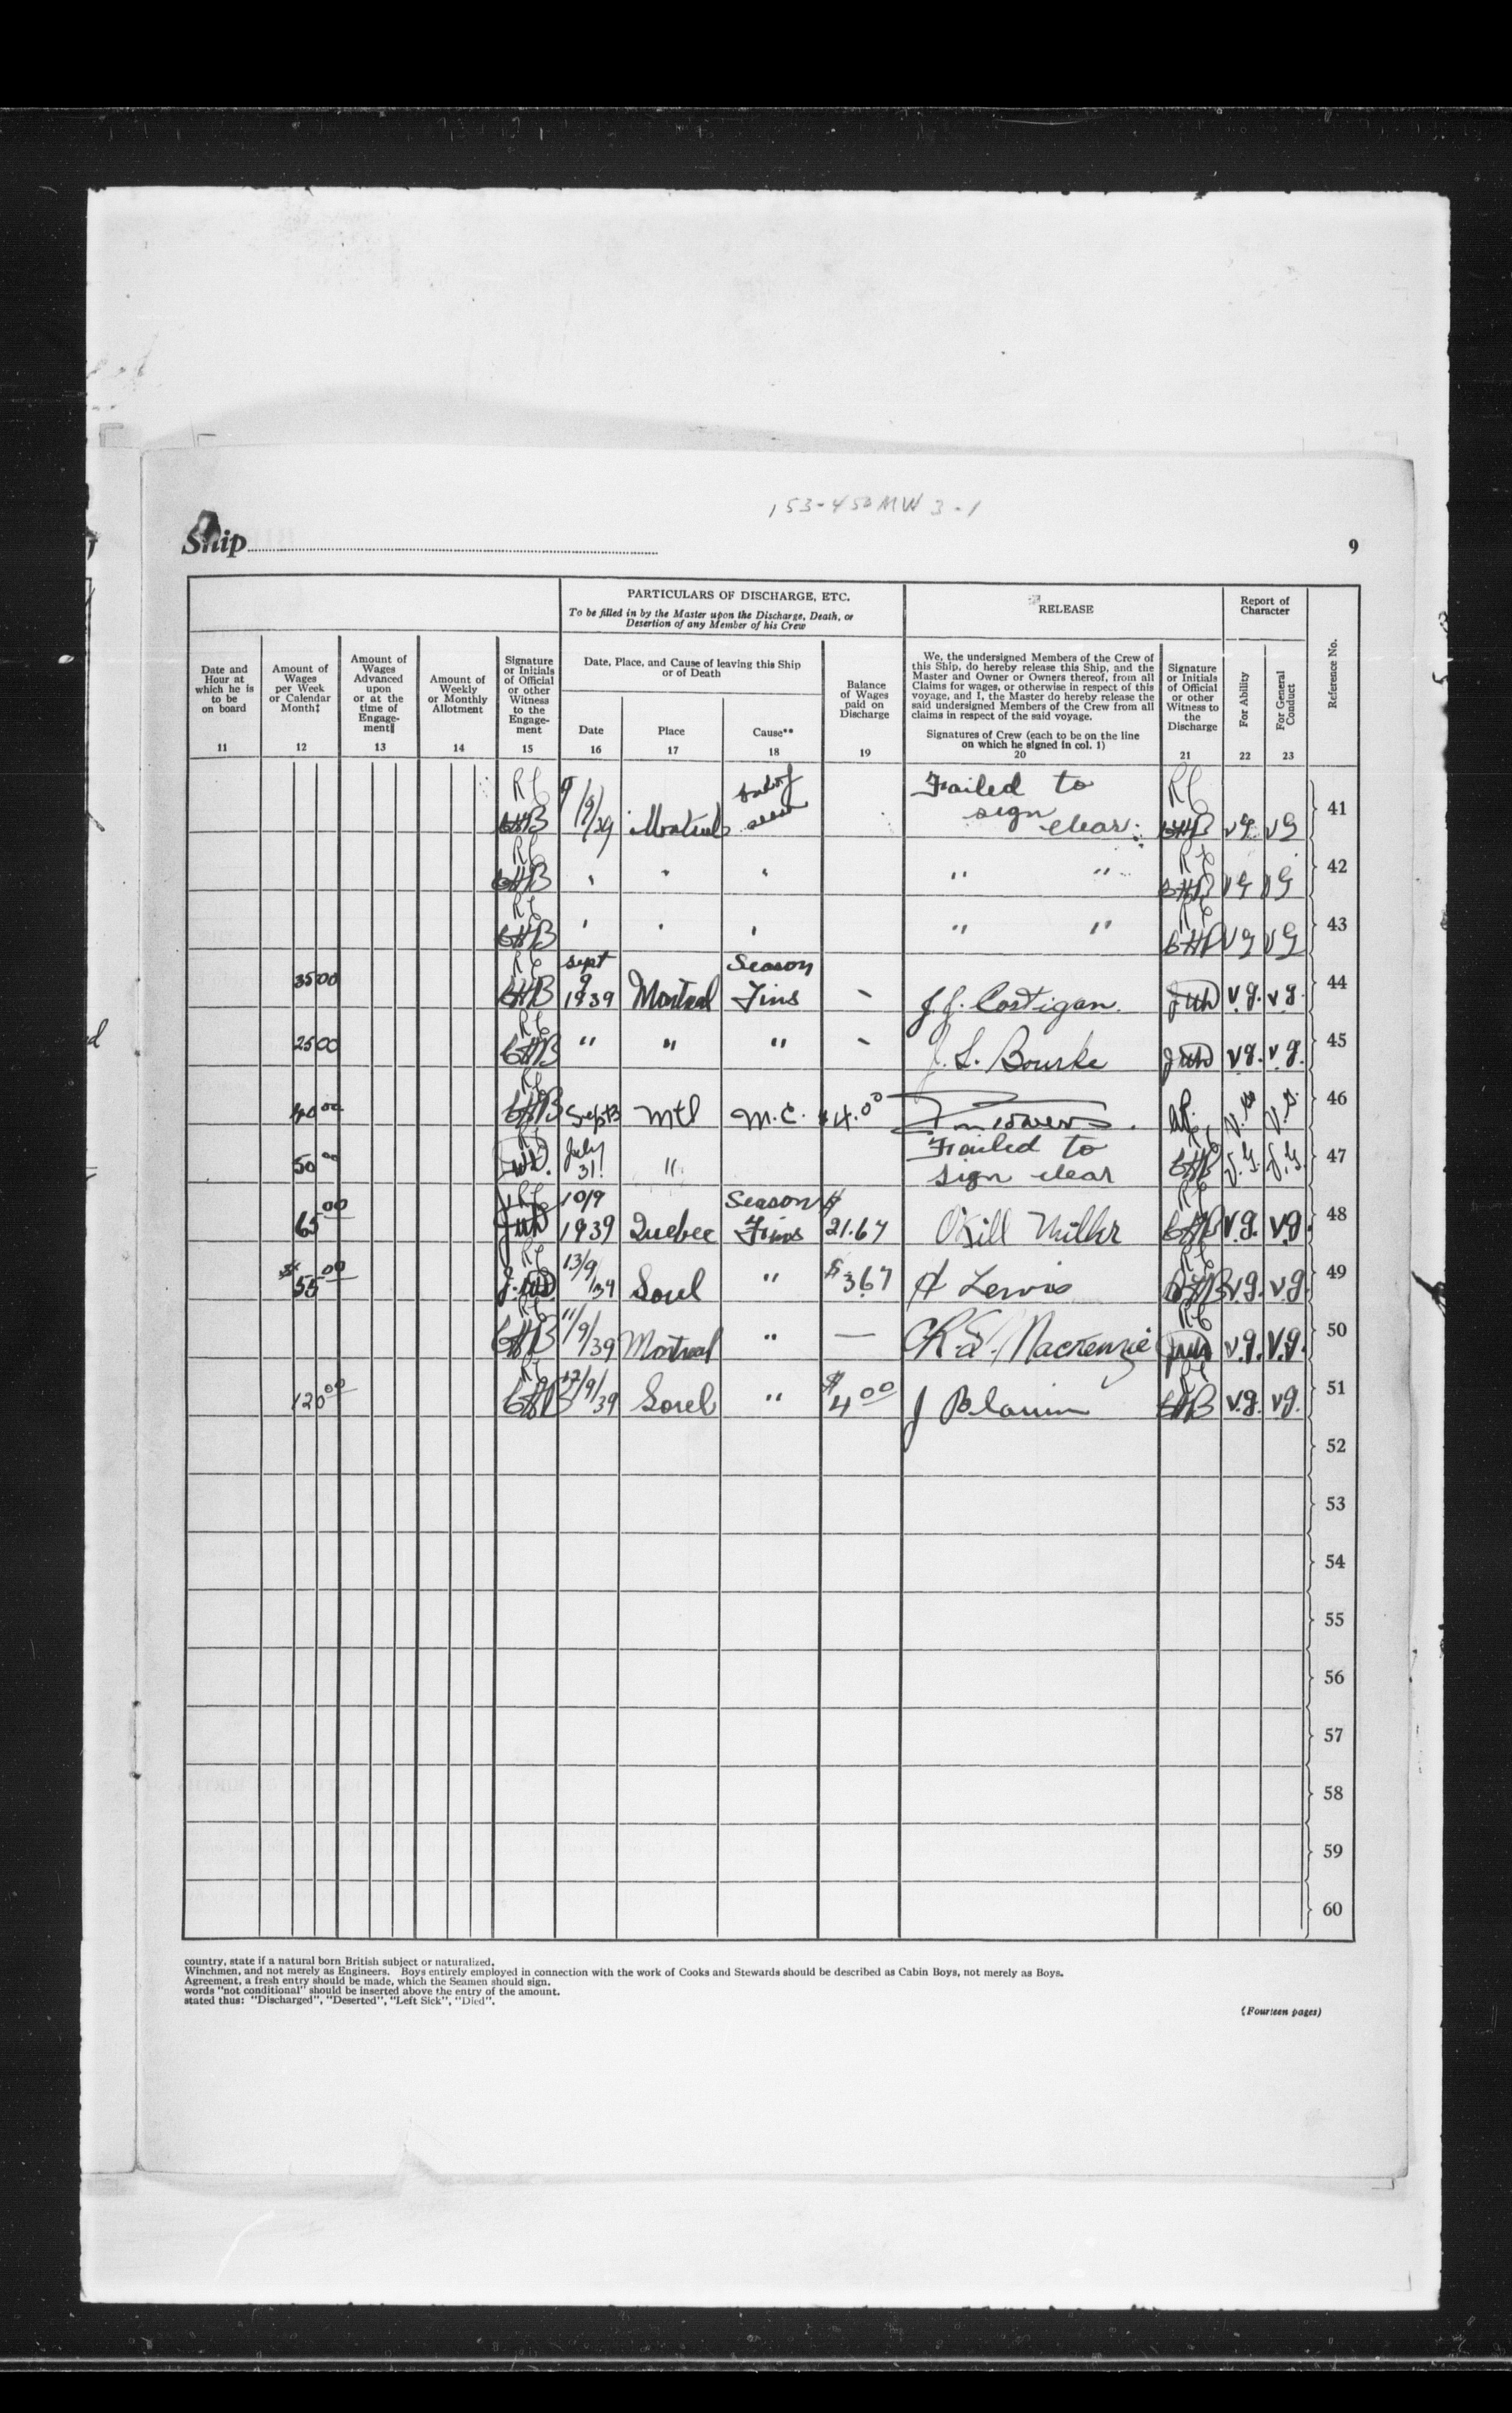 153-450 MW 3-1
Ship
9
PARTICULARS OF DISCHARGE, ETC.
To be filled in by the Master upon the Discharge, Death, or
Desertion of any Member of his Crew
RELEASE
Report of
Character
Reference No.
Date and
Hour at
which he is
to be
on board
11
Amount of
Wages
per Week
or Calendar
Month‡
12
Amount of
Wages
Advanced
upon
or at the
time of
Engage-
ment‖
13
Amount of
Weekly
or Monthly
Allotment
14
Signature
or Initials
of Official
or other
Witness
to the
Engage-
ment
15
Date, Place, and Cause of leaving this Ship
or of Death
Date
16
Place
17
Cause**
18
Balance
of Wages
paid on
Discharge
19
We, the undersigned Members of the Crew of
this Ship, do hereby release this Ship, and the
Master and Owner or Owners thereof, from all
Claims for wages, or otherwise in respect of this
voyage, and I, the Master do hereby release the
said undersigned Members of the Crew from all
claims in respect of the said voyage.
Signatures of Crew (each to be on the line
on which he signed in col. 1)
20
Signature
or Initials
of Official
or other
Witness to
the
Discharge
21
For Ability
22
For General
Conduct
23
9/9/39 Montreal Failed to sign clear: VG VG 41
" " " " " VG VG 42
" " " " " VG VG 43
3500 Sept 9 1939 Montreal Season Fins - J.J. Costigan V.g. v.g. 44
2500 " " " - J. L. Bourke V.g. v.g. 45
40 00 Sept 13 Mtl M.C. $4.00 46
50 00 July 31 " Failed to sign clear V.G. V.G. 47
65 00 10/9 1939 Quebec Season Fins $ 21.67 O'Kill Miller V.g. V.g. 48
$ 55 00 13/9/39 Sorel " $ 3.67 H Lewis V.g. V.g. 49
11/9/39 Montreal " — Mackenzie V.g. V.g. 50
120 00 12/9/39 Sorel " $ 4 00 J V.g. V.g. 51
52
53
54
55
56
57
58
59
60
country, state if a natural born British subject or naturalized.
Winchmen, and not merely as Engineers. Boys entirely employed in connection with the work of Cooks and Stewards should be described as Cabin Boys, not merely as Boys.
Agreement, a fresh entry should be made, which the Seamen should sign.
words "not conditional" should be inserted above the entry of the amount.
stated thus: "Discharged", "Deserted", "Left Sick", "Died".
(Fourteen pages)